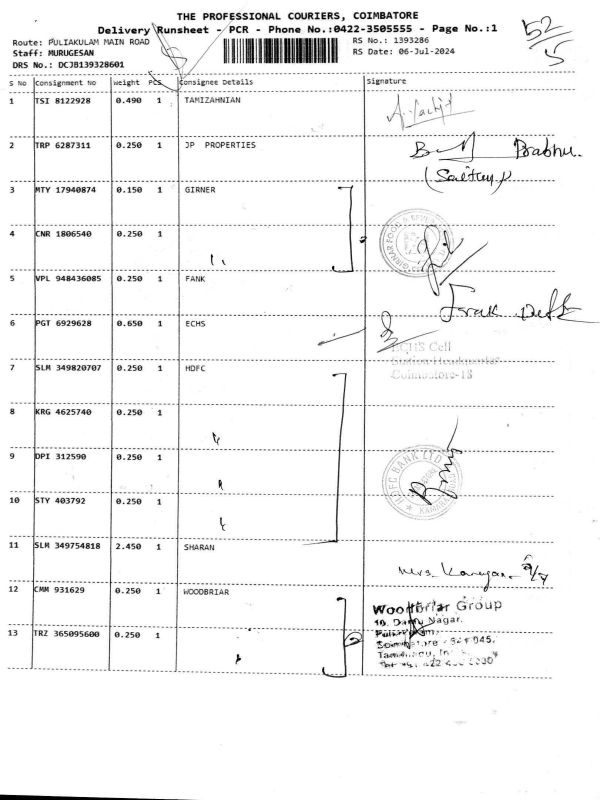 THE PROFESSIONAL COURIERS, COIMBATORE
Delivery Runsheet - PCR - Phone No.:0422-3505555 - Page No.:1
52/5
Route: PULIAKULAM MAIN ROAD
RS No.: 1393286
Staff: MURUGESAN
RS Date: 06-Jul-2024
DRS No.: DCJB139328601
S No Consignment No Weight PCS Consignee Details Signature
1 TSI 8122928 0.490 1 TAMIZAHNIAN
2 TRP 6287311 0.250 1 JP PROPERTIES
Prabhu.
3 MTY 17940874 0.150 1 GIRNER
4 CNR 1806540 0.250 1
5 VPL 948436085 0.250 1 FANK
6 PGT 6929628 0.650 1 ECHS
ECHS Cell
Station Headquarter
Coimbatore-18
7 SLM 349820707 0.250 1 HDFC
8 KRG 4625740 0.250 1
9 DPI 312590 0.250 1
HDFC BANK LTD
10 STY 403792 0.250 1
11 SLM 349754818 2.450 1 SHARAN
Mrs.
12 CMM 931629 0.250 1 WOODBRIAR
Woodbriar Group
10, Nagar,
13 TRZ 365095600 0.250 1
2